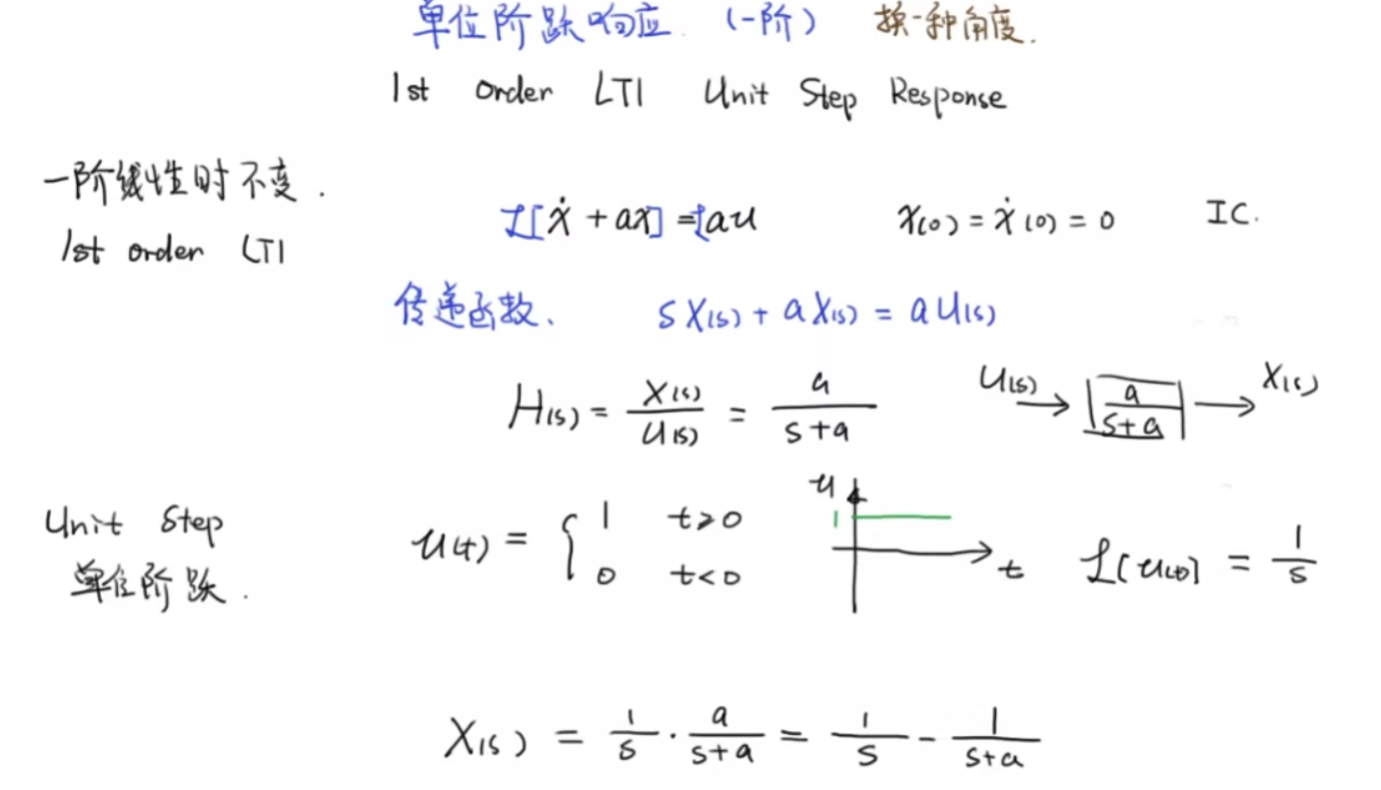 单位阶跃响应. (一阶) 换一种角度.
1st order LTI Unit Step Response
一阶线性时不变.
1st order LTI
ℒ[ẋ + ax] = ℒ[au x(0) = ẋ(0) = 0 IC.
传递函数、 sX(s) + aX(s) = aU(s)
H(s) = X(s)/U(s) = a/(s+a) U(s) → a/(s+a) → X(s)
Unit Step
单位阶跃.
u(t) = { 1 t≥0
0 t<0
u
1
t
ℒ[u(t)] = 1/s
X(s) = 1/s · a/(s+a) = 1/s - 1/(s+a)